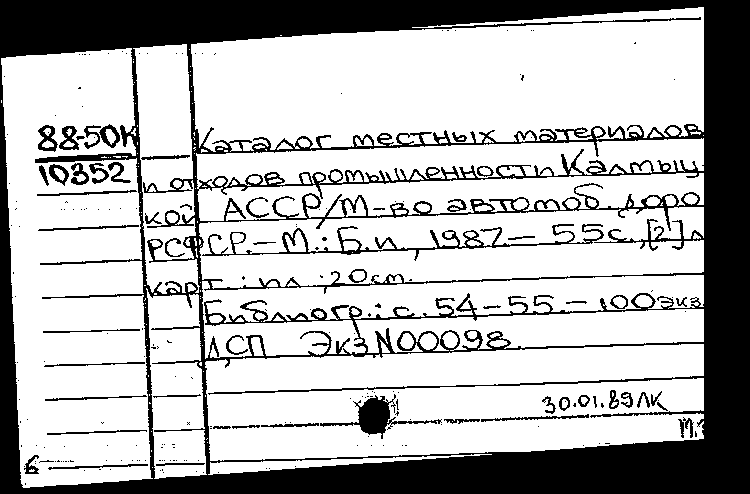 88-50К
10352
Каталог местных материалов
и отходов промышленности Калмыц-
кой АССР/М-во автомоб. доро
РСФСР.–М.: Б.и., 1987.– 55с., [2] л
карт.: ил ; 20 см.
Библиогр.: с. 54–55.–100 экз
ДСП Экз.N00098.
30.01.89 ЛК
6